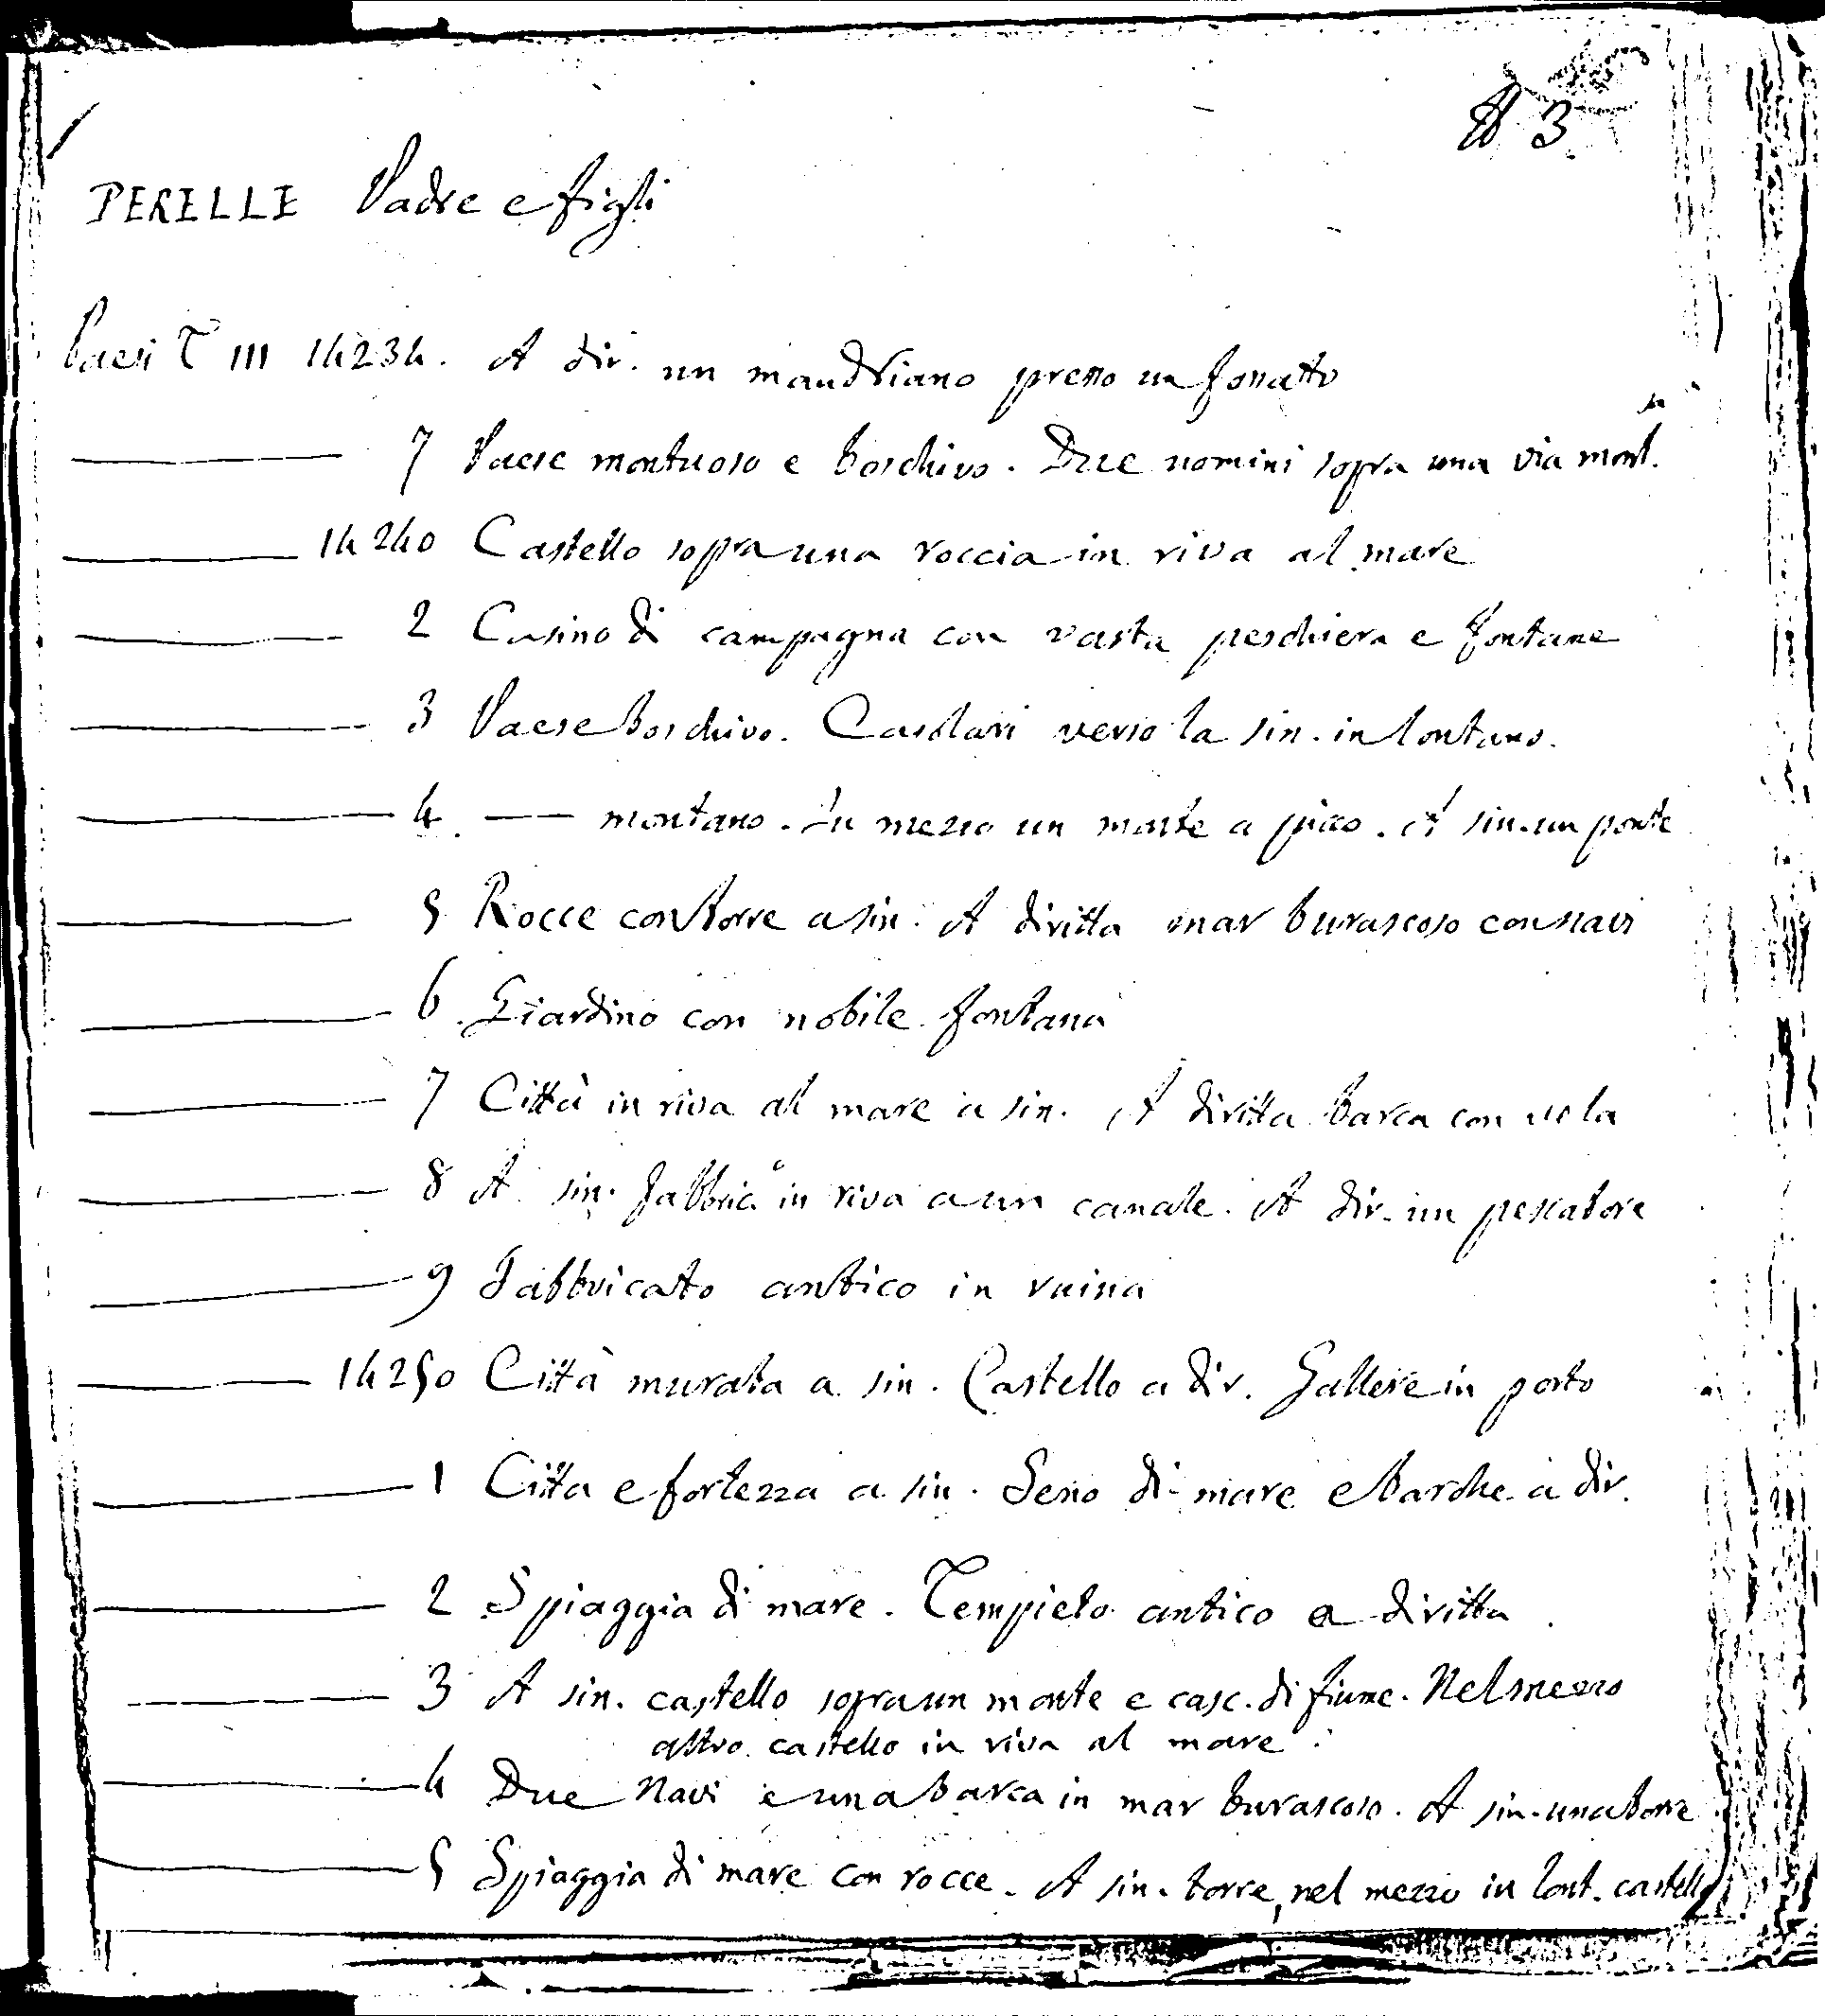 3
PERELLE Padre e figli
Paesi T III 14234. A dir. un mandriano presso un fossatto
7 Paese montuoso e boschivo. Due uomini sopra una via mont.a
14240 Castello sopra una roccia in riva al mare
2 Casino di campagna con vasta peschiera e fontane
3 Paese boschivo. Casolari verso la sin. in lontano.
4 — montano. In mezzo un monte a picco. A sin. un ponte
5 Rocce con torre a sin. A diritta mar burascoso con navi
6 Giardino con nobile fontana
7 Città in riva al mare a sin. A diritta barca con vela
8 A sin. fabbric.e in riva a un canale. A dir. un pescatore
9 Fabbricato antico in ruina
14250 Città murata a sin. Castello a dir. Gallere in porto
1 Citta e fortezza a sin. Seno di mare e barche a dir.
2 Spiaggia di mare. Tempieto antico a diritta.
3 A sin. castello sopra un monte e casc. di fiume. Nel mezzo
altro castello in riva al mare.
4 Due Navi e una barca in mar burascoso. A sin. una torre
5 Spiaggia di mare con rocce. A sin. torre, nel mezzo in lont. castello